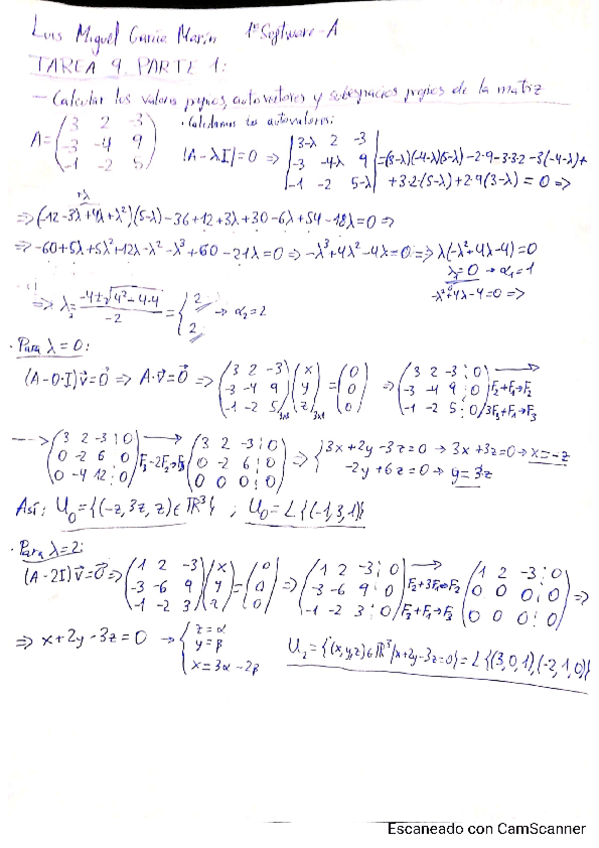 Luis Miguel García Marín 1º Software-A
TAREA 9 PARTE 1:
- Calcular los valores propios, autovectores y subespacios propios de la matriz
A = (3 2 -3; -3 -4 9; -1 -2 5) · Calculamos los autovalores:
|A - λI| = 0 ⇒ |3-λ 2 -3; -3 -4-λ 9; -1 -2 5-λ| = (3-λ)(-4-λ)(5-λ) - 2·9 - 3·3·2 - 3(-4-λ) +
+ 3·2·(5-λ) + 2·9(3-λ) = 0 ⇒
+λ
⇒ (-12-3λ+4λ+λ²)(5-λ) - 36 + 12 + 3λ + 30 - 6λ + 54 - 18λ = 0 ⇒
⇒ -60 + 5λ + 5λ² + 12λ - λ² - λ³ + 60 - 21λ = 0 ⇒ -λ³ + 4λ² - 4λ = 0 ⇒ λ(-λ² + 4λ - 4) = 0
λ₁ = 0 → α₁ = 1
-λ² + 4λ - 4 = 0 ⇒
⇒ λ₂ = (-4 ± √(4² - 4·4)) / -2 = { 2 ; 2 → α₂ = 2
· Para λ = 0:
(A - 0·I)v⃗ = 0⃗ ⇒ A·v⃗ = 0⃗ ⇒ (3 2 -3; -3 -4 9; -1 -2 5)₃ₓ₃ (x; y; z)₃ₓ₁ = (0; 0; 0) ⇒ (3 2 -3 : 0; -3 -4 9 : 0; -1 -2 5 : 0) → F₂+F₁→F₂ 3F₃+F₁→F₃
---> (3 2 -3 : 0; 0 -2 6 : 0; 0 -4 12 : 0) → F₃-2F₂→F₃ (3 2 -3 : 0; 0 -2 6 : 0; 0 0 0 : 0) ⇒ { 3x+2y-3z=0 → 3x+3z=0 → x=-z
-2y+6z=0 ⇒ y=3z
Así: U₀ = {(-z, 3z, z) ∈ ℝ³} ; U₀ = L{(-1,3,1)}
· Para λ=2:
(A-2I)v⃗ = 0⃗ ⇒ (1 2 -3; -3 -6 9; -1 -2 3)(x; y; z) = (0; 0; 0) ⇒ (1 2 -3 : 0; -3 -6 9 : 0; -1 -2 3 : 0) → F₂+3F₁→F₂ F₃+F₁→F₃ (1 2 -3 : 0; 0 0 0 : 0; 0 0 0 : 0) ⇒
⇒ x+2y-3z=0 → { z=α ; y=β ; x=3α-2β
U₂ = {(x,y,z) ∈ ℝ³ / x+2y-3z=0} = L{(3,0,1),(-2,1,0)}
Escaneado con CamScanner